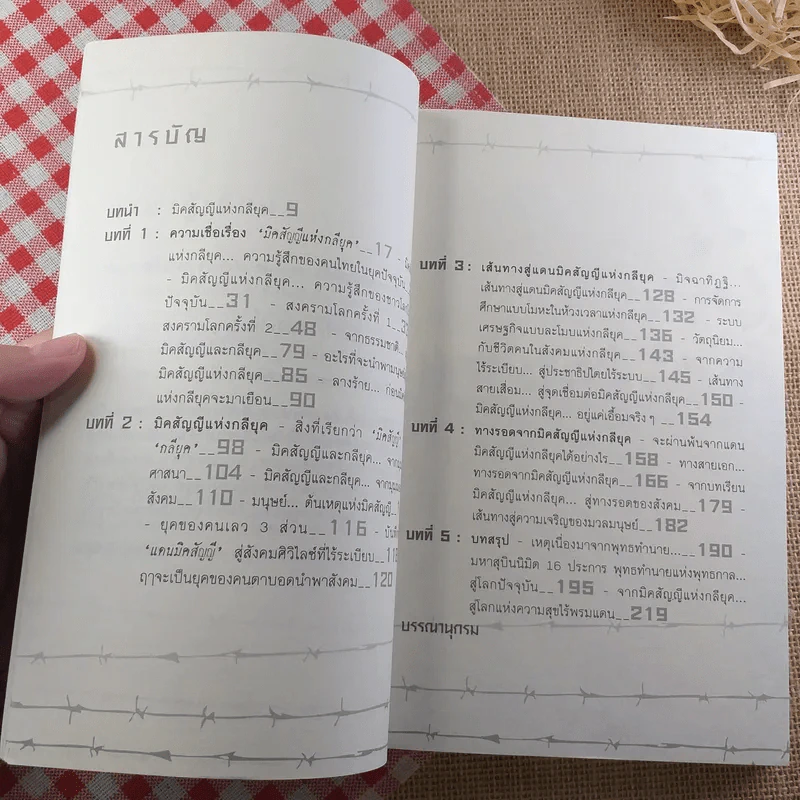 สารบัญ
บทนำ : มิคสัญญีแห่งกลียุค__9
บทที่ 1 : ความเชื่อเรื่อง 'มิคสัญญีแห่งกลียุค'__17 -
แห่งกลียุค... ความรู้สึกของคนไทยในยุคปัจจุบัน
- มิคสัญญีแห่งกลียุค... ความรู้สึกของชาวโลก
ปัจจุบัน__31 - สงครามโลกครั้งที่ 1__
สงครามโลกครั้งที่ 2__48 - จากธรรมชาติ...
มิคสัญญีและกลียุค__79 - อะไรที่จะนำพามนุษย์
มิคสัญญีแห่งกลียุค__85 - ลางร้าย... ก่อน
แห่งกลียุคจะมาเยือน__90
บทที่ 2 : มิคสัญญีแห่งกลียุค - สิ่งที่เรียกว่า 'มิคสัญญี'
'กลียุค'__98 - มิคสัญญีและกลียุค... จาก
ศาสนา__104 - มิคสัญญีและกลียุค... จาก
สังคม__110 - มนุษย์... ต้นเหตุแห่งมิคสัญญี
- ยุคของคนเลว 3 ส่วน__116 -
'แดนมิคสัญญี' สู่สังคมศิวิไลซ์ที่ไร้ระเบียบ__118
ฤๅจะเป็นยุคของคนตาบอดนำพาสังคม__120
บทที่ 3 : เส้นทางสู่แดนมิคสัญญีแห่งกลียุค - มิจฉาทิฏฐิ...
เส้นทางสู่แดนมิคสัญญีแห่งกลียุค__128 - การจัดการ
ศึกษาแบบโมหะในห้วงเวลาแห่งกลียุค__132 - ระบบ
เศรษฐกิจแบบละโมบแห่งกลียุค__136 - วัตถุนิยม...
กับชีวิตคนในสังคมแห่งกลียุค__143 - จากความ
ไร้ระเบียบ... สู่ประชาธิปไตยไร้ระบบ__145 - เส้นทาง
สายเสื่อม... สู่จุดเชื่อมต่อมิคสัญญีแห่งกลียุค__150 -
มิคสัญญีแห่งกลียุค... อยู่แค่เอื้อมจริงๆ__154
บทที่ 4 : ทางรอดจากมิคสัญญีแห่งกลียุค - จะผ่านพ้นจากแดน
มิคสัญญีแห่งกลียุคได้อย่างไร__158 - ทางสายเอก...
ทางรอดจากมิคสัญญีแห่งกลียุค__166 - จากบทเรียน
มิคสัญญีแห่งกลียุค... สู่ทางรอดของสังคม__179 -
เส้นทางสู่ความเจริญของมวลมนุษย์__182
บทที่ 5 : บทสรุป - เหตุเนื่องมาจากพุทธทำนาย...__190 -
มหาสุบินนิมิต 16 ประการ พุทธทำนายแห่งพุทธกาล...
สู่โลกปัจจุบัน__195 - จากมิคสัญญีแห่งกลียุค...
สู่โลกแห่งความสุขไร้พรมแดน__219
บรรณานุกรม